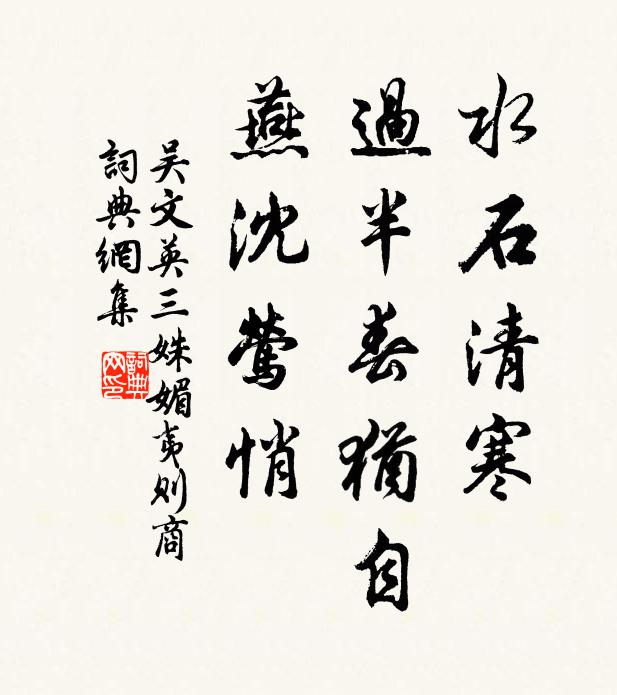 水石清寒
過半春猶自
燕沈鶯悄
吳文英三姝媚夷則商
詞典網集
詞典
网印